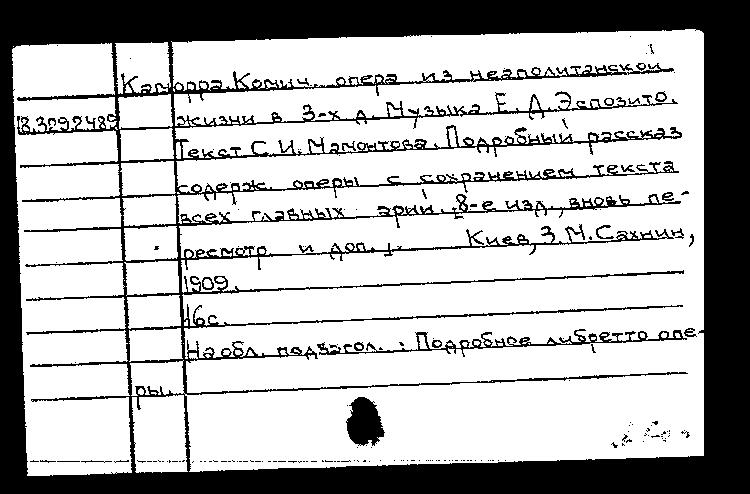 Каморра. Комич. опера из неаполитанской
18.329.2489 жизни в 3-х д. Музыка Е. Д. Эспозито.
Текст С. И. Мамонтова. Подробный рассказ
содерж. оперы с сохранением текста
всех главных арий. 8-е изд., вновь пе-
ресмотр. и доп. Киев, З. М. Сахнин,
1909.
16с.
На обл. подзагол.: Подробное либретто опе-
ры.